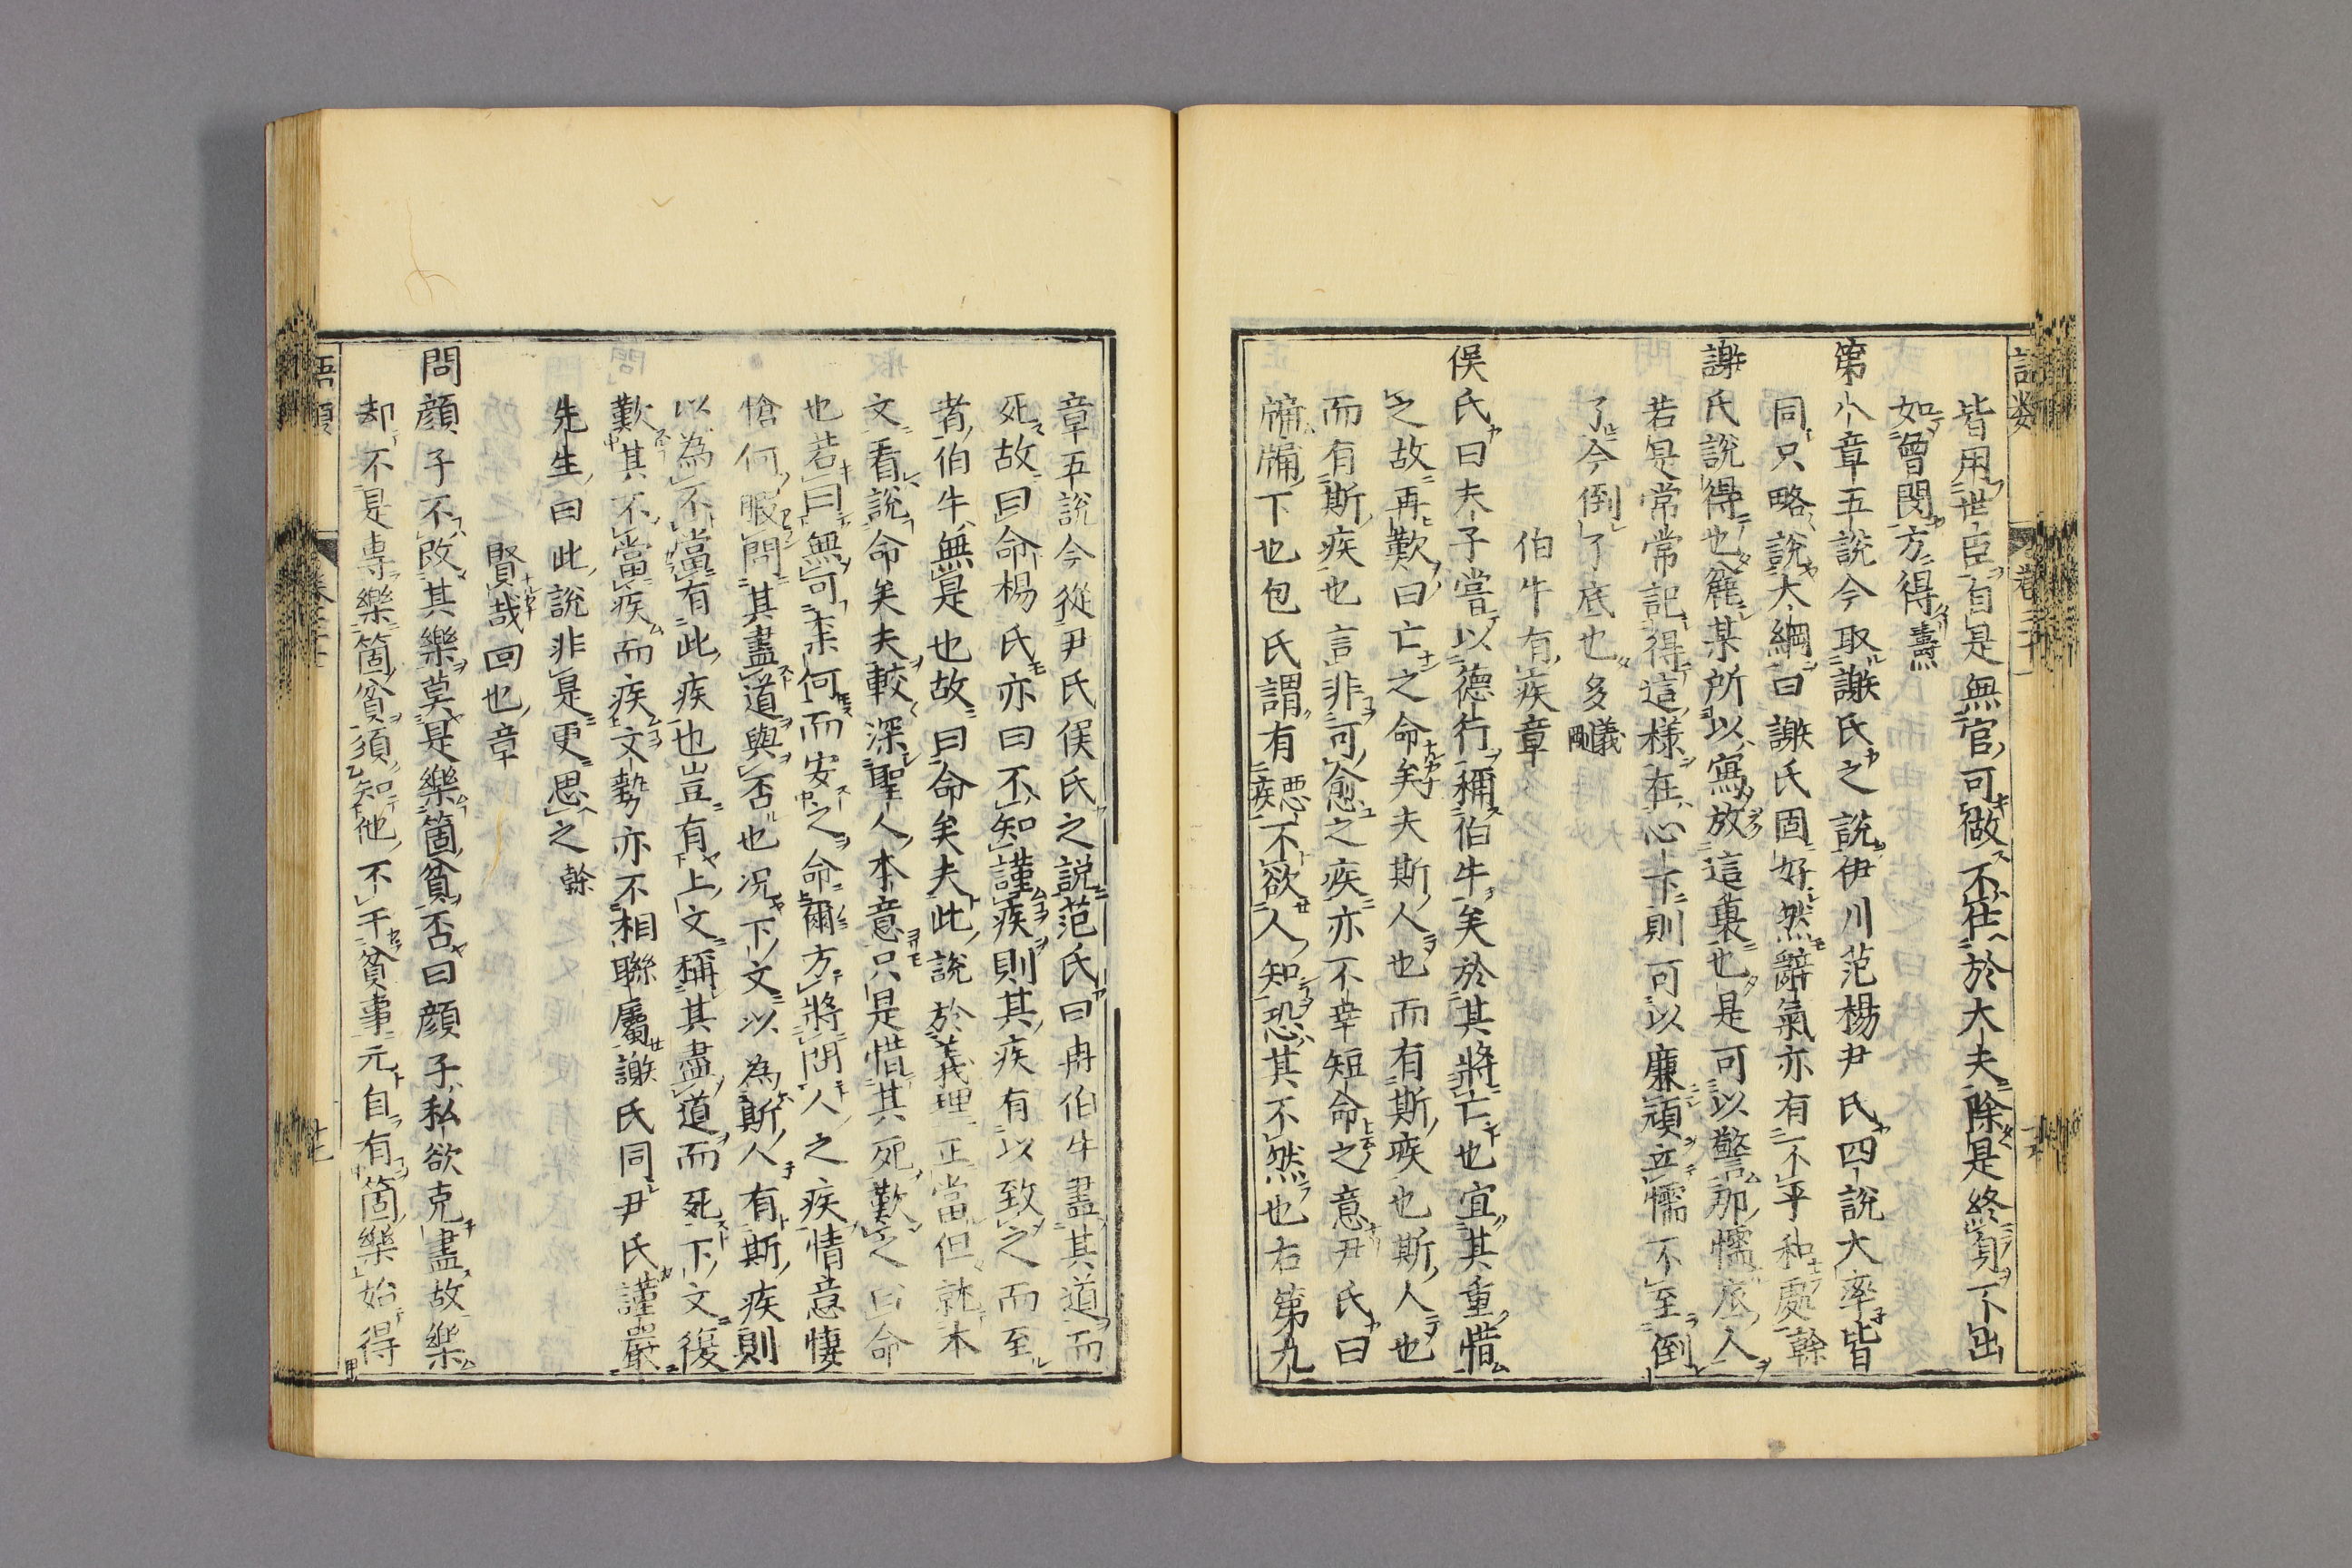 皆用世臣自是無官可做不仕於大夫除是終身不出
如曾閔方得燾
第八章五說今取謝氏之說伊川范楊尹氏四說大率皆
同只略說大綱曰謝氏固好然辭氣亦有不平和處榦
謝氏說得也麄某所以寫放這裏也是可以警那懦底人
若是常常記得這樣在心下則可以廉頑立懦不至倒
了今倒了底也多義剛
伯牛有疾章
侯氏曰夫子嘗以德行稱伯牛矣於其將亡也宜其重惜
之故再歎曰亡之命矣夫斯人也而有斯疾也斯人也
而有斯疾也言非可愈之疾亦不幸短命之意尹氏曰
牖牖下也包氏謂有惡疾不欲人知恐其不然也右第九
章五說今從尹氏侯氏之說范氏曰冉伯牛盡其道而
死故曰命楊氏亦曰不知謹疾則其疾有以致之而至
者伯牛無是也故曰命矣夫此說於義理正當但就本
文看說命矣夫較深聖人本意只是惜其死歎之曰命
也若曰無可柰何而安之命爾方將問人之疾情意悽
愴何暇問其盡道與否也况下文以為斯人有斯疾則
以為不當有此疾也豈有上文稱其盡道而死下文復
歎其不當疾而疾文勢亦不相聯屬謝氏同尹氏謹嚴
先生曰此說非是更思之榦
賢哉回也章
問顔子不改其樂莫是樂箇貧否曰顔子私欲克盡故樂
却不是專樂箇貧須知他不干貧事元自有箇樂始得